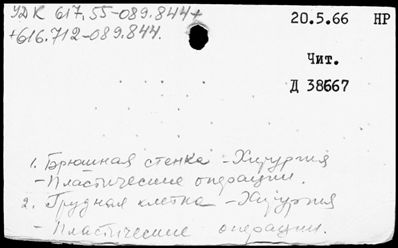 УДК 617.55-089.844+
+616.712-089.844.
20.5.66 НР
Чит.
Д 38667
1. Брюшная стенка - Хирургия
- Пластические операции.
2. Грудная клетка - Хирургия
- Пластические операции.